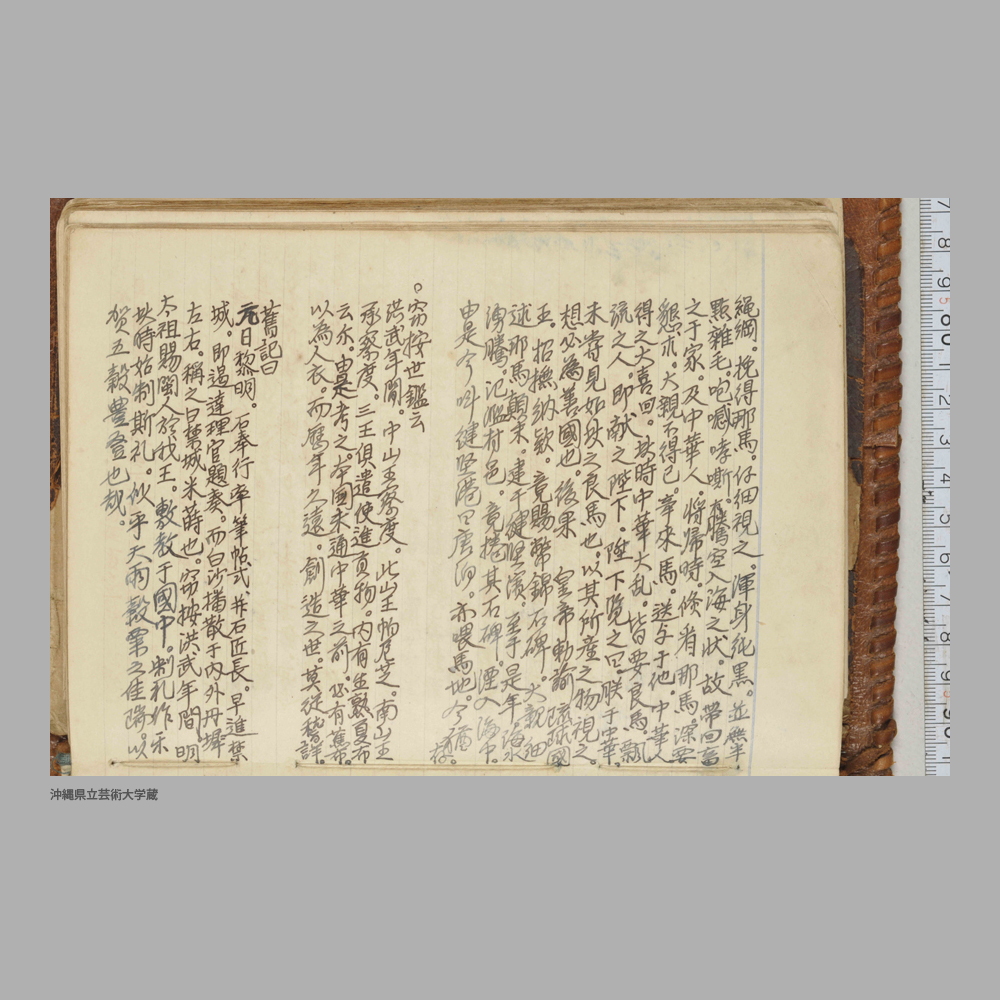 繩綱。挽得那馬。仔細視之。渾身純黑。並無半
點雜毛。咆哮嘶。有騰空入海之状。故帶回畜
之于家。及中華人。將帰時。倏看那馬。深要
懇求。大親不得已。牽來馬。送与于他。中華人
得之大喜回。此時中華大乱。皆要良馬。
流之人。即献之陛下。陛下覧之曰。朕于中華。
未嘗見如此之良馬也。以其所產之物視之。
想必為善國也。後果 皇帝勅諭 琉球國
王。招撫納欵。竟賜幣錦石碑。大親細
述那馬顛末。建于健堅濱。至于是年。海水
湧騰。氾濫村邑。竟捲其石碑。湮入海中。
由是今叫健堅港曰唐泊。亦畏馬地。今猶
存。
○窃按世鑑云
洪武年間。中山王察度。此山王怕尼芝。南山王
承察度。三王俱遣使進貢物。内有生熟夏布
云尓。由是考之。本國未通中華之前。必有蕉布。
以為人衣。而歴年久遠。創造之世。莫從稽詳。
舊記曰
元日黎明。石奉行率筆帖式。并石匠長。早進禁
城。即過達理官題奏。而白沙播散于内外丹墀
左右。稱之曰禁城米蒔也。窃按洪武年間。明
太祖賜閩人於我王。敷教于國中。制礼作乐
此時始制斯礼。似乎天雨穀粟之佳瑞。以
賀五穀豊登也哉。
沖縄県立芸術大学蔵